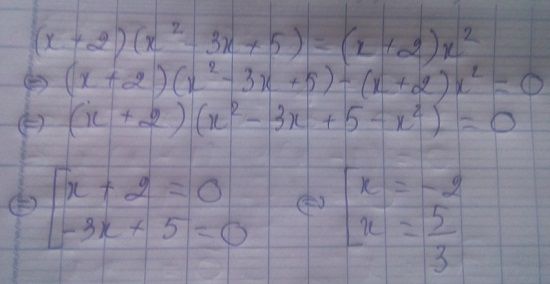 (x + 2)(x² - 3x + 5) = (x + 2)x²
⇔ (x + 2)(x² - 3x + 5) - (x + 2)x² = 0
⇔ (x + 2)(x² - 3x + 5 - x²) = 0
⇔ [ x + 2 = 0 ⇔ [ x = -2
-3x + 5 = 0 x = 5/3